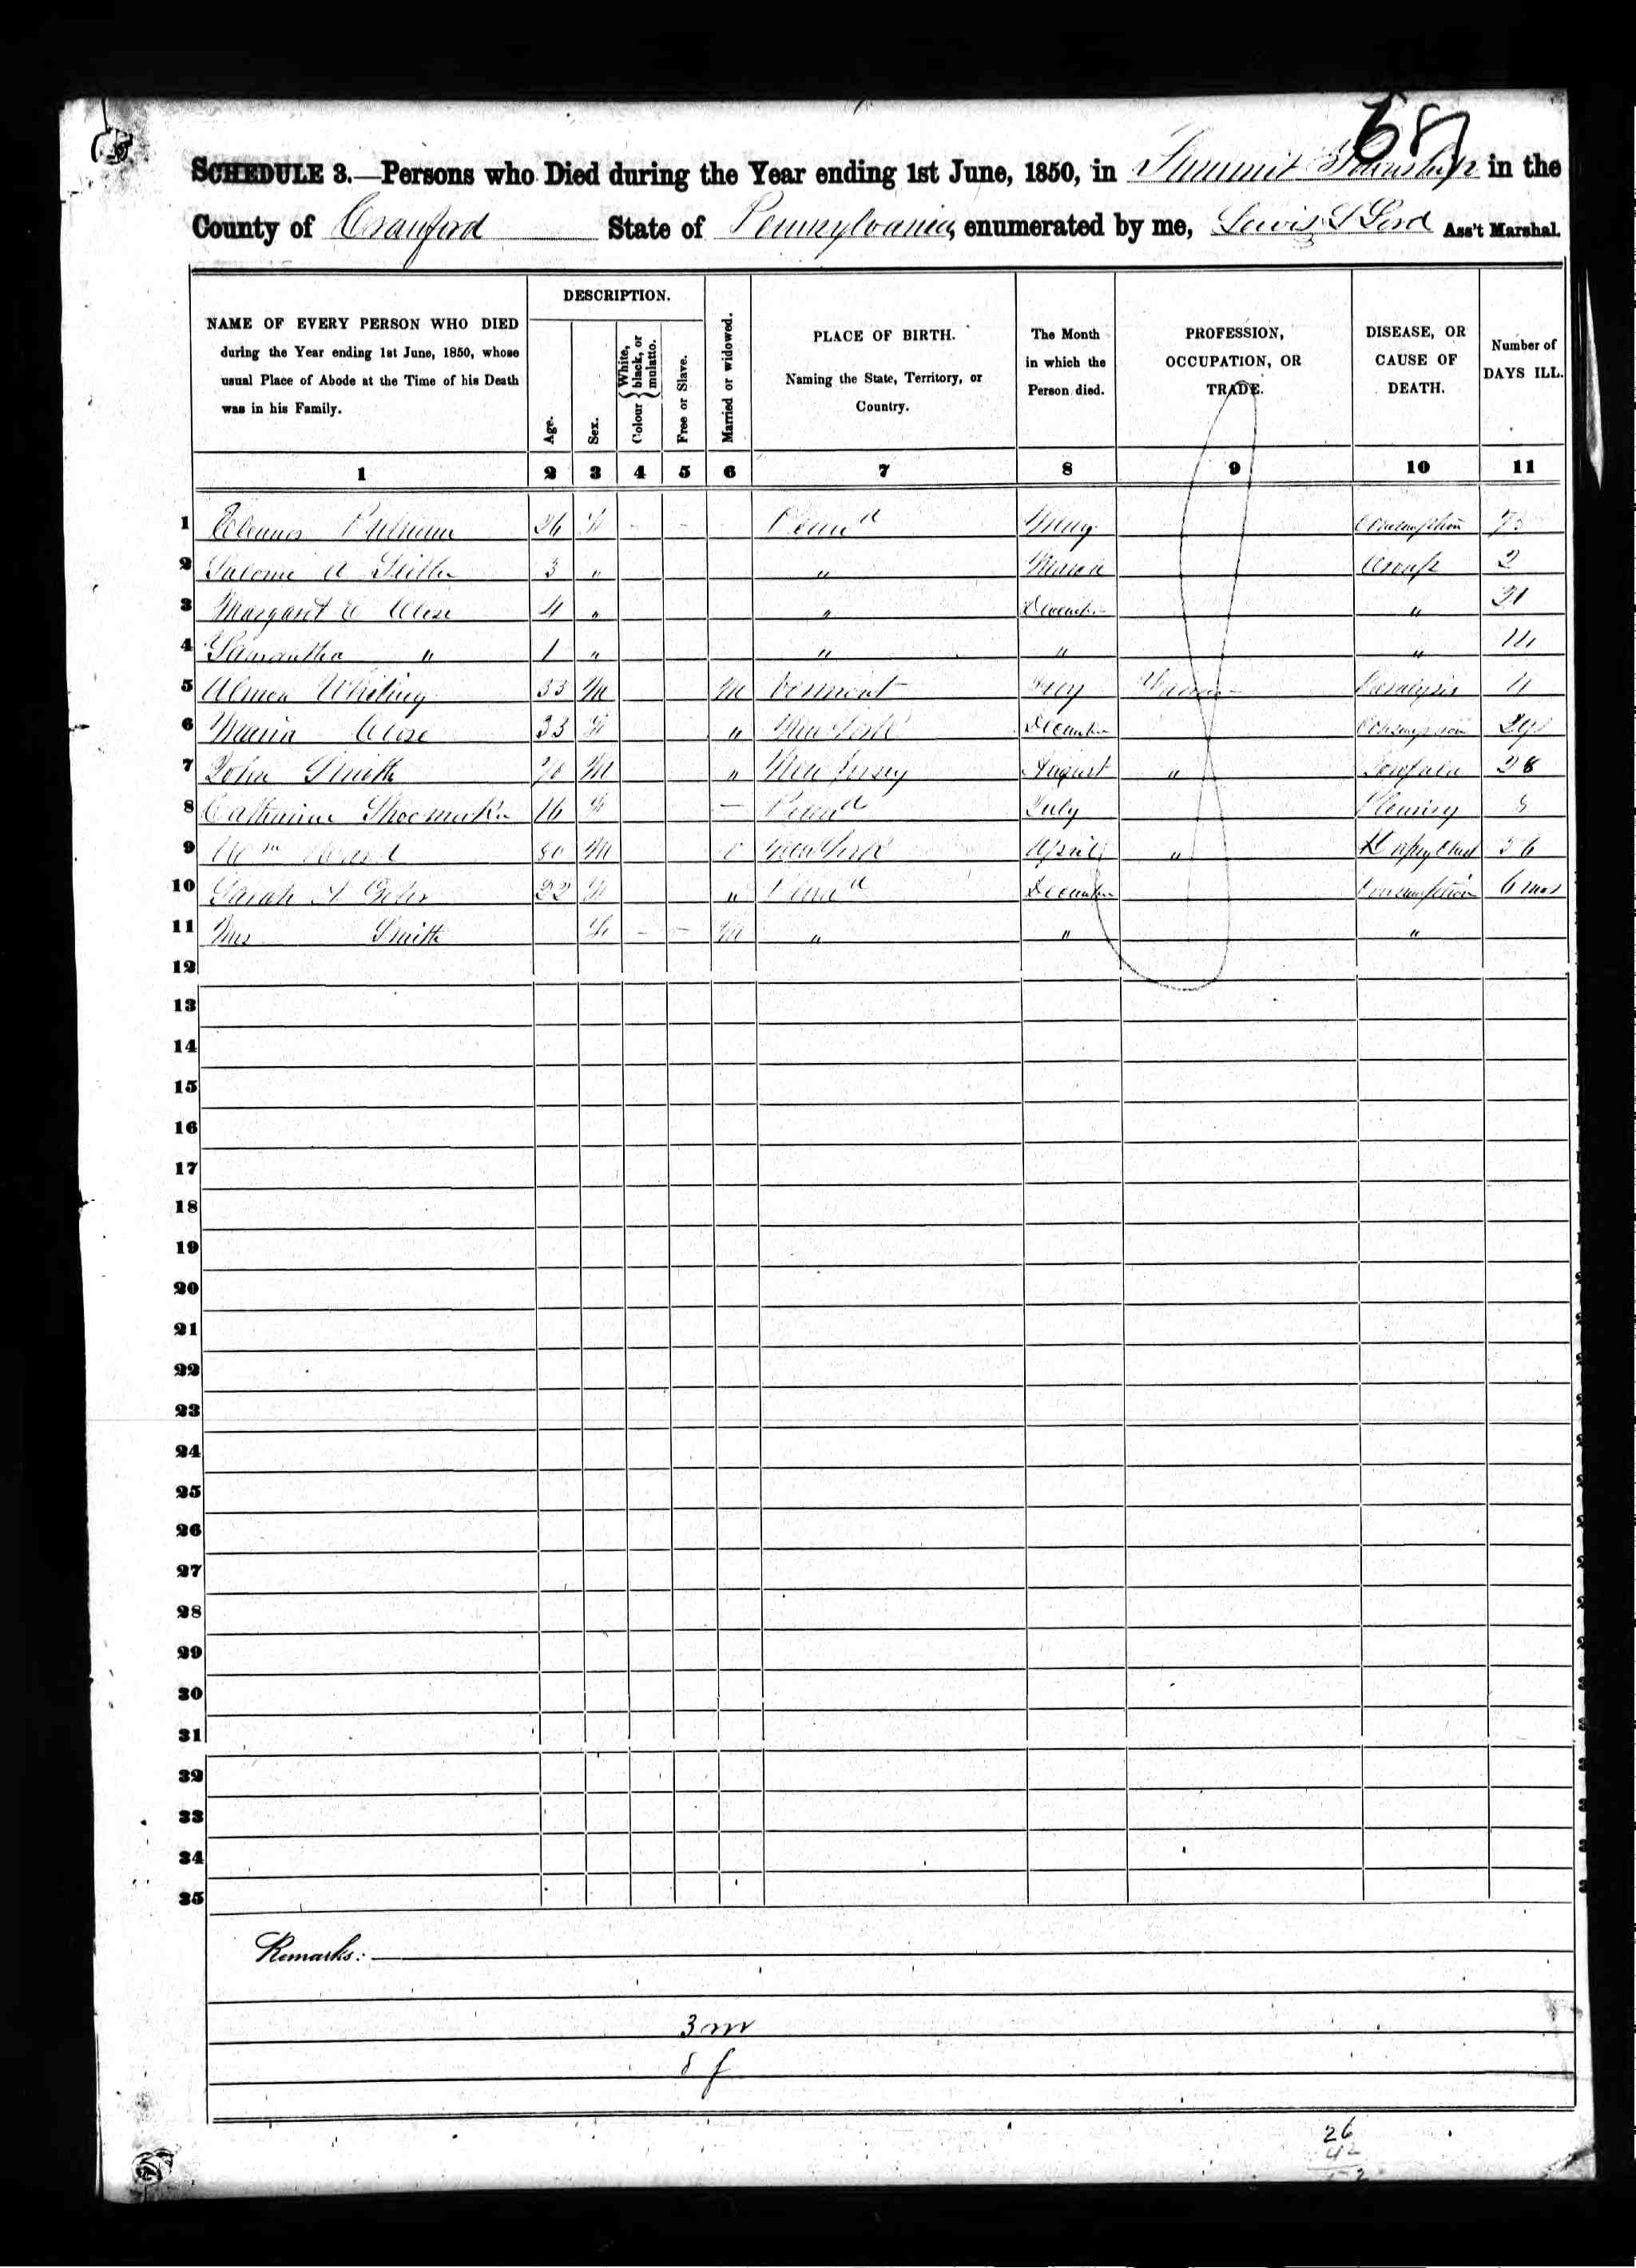 687
SCHEDULE 3.—Persons who Died during the Year ending 1st June, 1850, in Summit Township in the
County of Crawford State of Pennsylvania, enumerated by me, Lewis L Lord Ass't Marshal.
NAME OF EVERY PERSON WHO DIED during the Year ending 1st June, 1850, whose usual Place of Abode at the Time of his Death was in his Family.
DESCRIPTION.
Age.
Sex.
Colour { White, black, or mulatto.
Free or Slave.
Married or widowed.
PLACE OF BIRTH. Naming the State, Territory, or Country.
The Month in which the Person died.
PROFESSION, OCCUPATION, OR TRADE.
DISEASE, OR CAUSE OF DEATH.
Number of DAYS ILL.
1 2 3 4 5 6 7 8 9 10 11
1 Eleanor 26 F - - Penn a May Consumption
2 Salome A 3 " " March Croup 2
3 Margaret E Close 4 " " December " 21
4 Samantha " 1 " " " " 14
5 Almon Whiting 55 M M Vermont Paralysis 4
6 Maria Close 33 F " New York December Consumption
7 John Smith M " New Jersey August " Scrofula 28
8 Catharine Shoemaker 16 F — Penn a July Pleurisy
9 Wm Ward 80 M New York April " 56
10 Sarah A 22 F " Penn a December Consumption 6 mos
11 Mrs Smith F - - M " " "
12
13
14
15
16
17
18
19
20
21
22
23
24
25
26
27
28
29
30
31
32
33
34
35
Remarks:
3 m
8 f
26
42